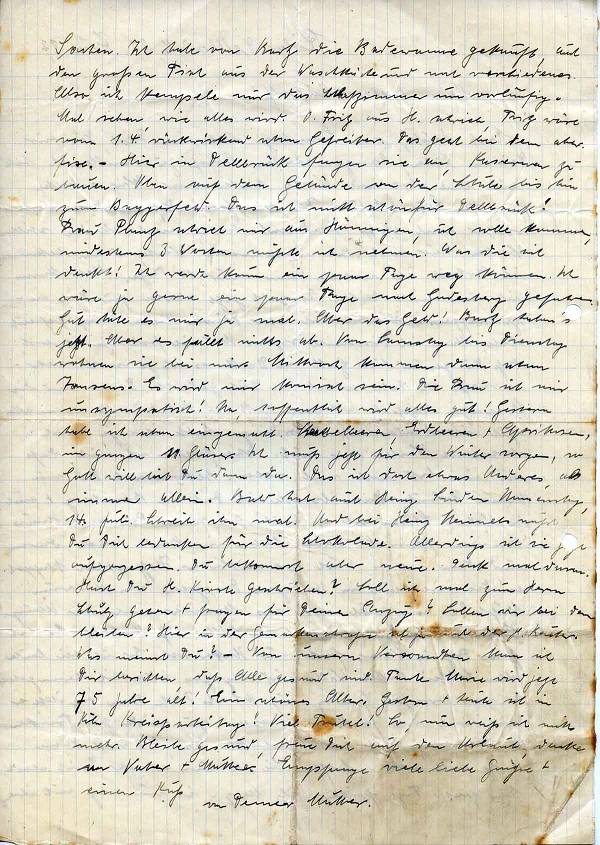 Spaten. Ich habe von Burtz die Badewanne gekauft, und
den großen Tisch aus der Waschküche und noch verschiedenes.
Also ich krempele nur das Schlafzimmer um vorläufig.
Mal sehen wie alles wird. O. Fritz aus H. schrieb Fritz wäre
vom 1.4. rückwirkend schon Gefreiter. Das geht bei dem aber
fix. – Hier in Dellbrück fangen sie an, Kasernen zu
bauen. Oben auf dem Gelände von der Schule bis hin
zum Baggerfeld. Das ist nicht schön für Dellbrück!
Frau schrieb mir aus Hönningen, ich solle kommen,
mindestens 3 Wochen müßte ich nehmen. Was die sich
denkt! Ich werde kaum ein paar Tage weg können. Ich
wäre ja gerne ein paar Tage nach Godesberg gefahren.
Gut täte es mir ja mal. Aber das Geld! Burtz haben's
jetzt. Aber es fällt nichts ab. Von Samstag bis Dienstag
wohnen sie bei mir. Mittwoch kommen dann schon
Jansens. Es wird mir komisch sein. Die Frau ist mir
unsympatisch! Na hoffentlich wird alles gut! Gestern
habe ich schon eingemacht. Stachelbeeren, Erdbeeren + Aprikosen,
im ganzen 11 Gläser. Ich muß jetzt für den Winter sorgen, so
Gott will bist Du dann da. Das ist doch etwas Anderes, als
immer allein. Bald hat auch Heinz Linden Namenstag,
14. Juli. Schreib ihm mal. Und bei Heinz Hemmels mußt
Du Dich bedanken für die Schokolade. Allerdings ist sie jetzt
aufgegessen. Du bekommst aber neue. Denk mal daran.
Hast Du H. geschrieben? Soll ich mal zum Herrn
Schulz gehen + fragen für Deine Anzug? Sollen wir bei dem
bleiben? Hier in der ist ja auch der
Was meinst Du? – Von unsern Verwandten kann ich
Dir berichten, daß Alle gesund sind. Tante Marie wird jetzt
75 Jahre alt! Ein schönes Alter. Gestern + heute ist in
Köln Kreisparteitag! Viel Trubel! So, nun weiß ich nichts
mehr. Bleibe gesund, freue Dich auf den Urlaub, denke
an Vater + Mutter. Empfange viele liebe Grüße +
einen Kuß
von Deiner Mutter.